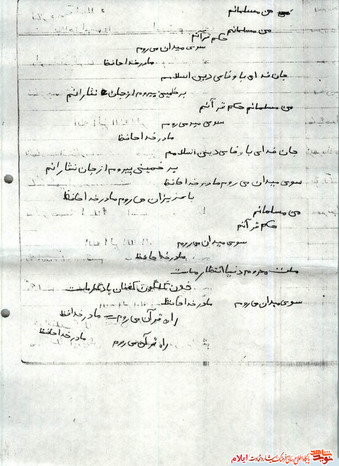 من مسلمانم
من مسلمانم
حکم قرآنم
سوی میدان می روم
مادر خداحافظ
جان فدای با وفای دین اسلامم
بر خمینی پیروم از جان نثارانم
من مسلمانم حکم قرآنم
سوی میدان می روم
مادر خداحافظ
جان فدای با وفای دین اسلامم
بر خمینی پیروم از جان نثارانم
سوی میدان می روم مادر خداحافظ
با عزیزان می روم مادر خداحافظ
من مسلمانم
حکم قرآنم
سوی میدان می روم
مادر خداحافظ
ملت محروم دنیا انتظار ماست
خون گلگون کفنان یادگار ماست
سوی میدان می روم مادر خداحافظ
راه قرآن می روم مادر خداحافظ
راه قرآن می روم مادر خداحافظ
ایلام